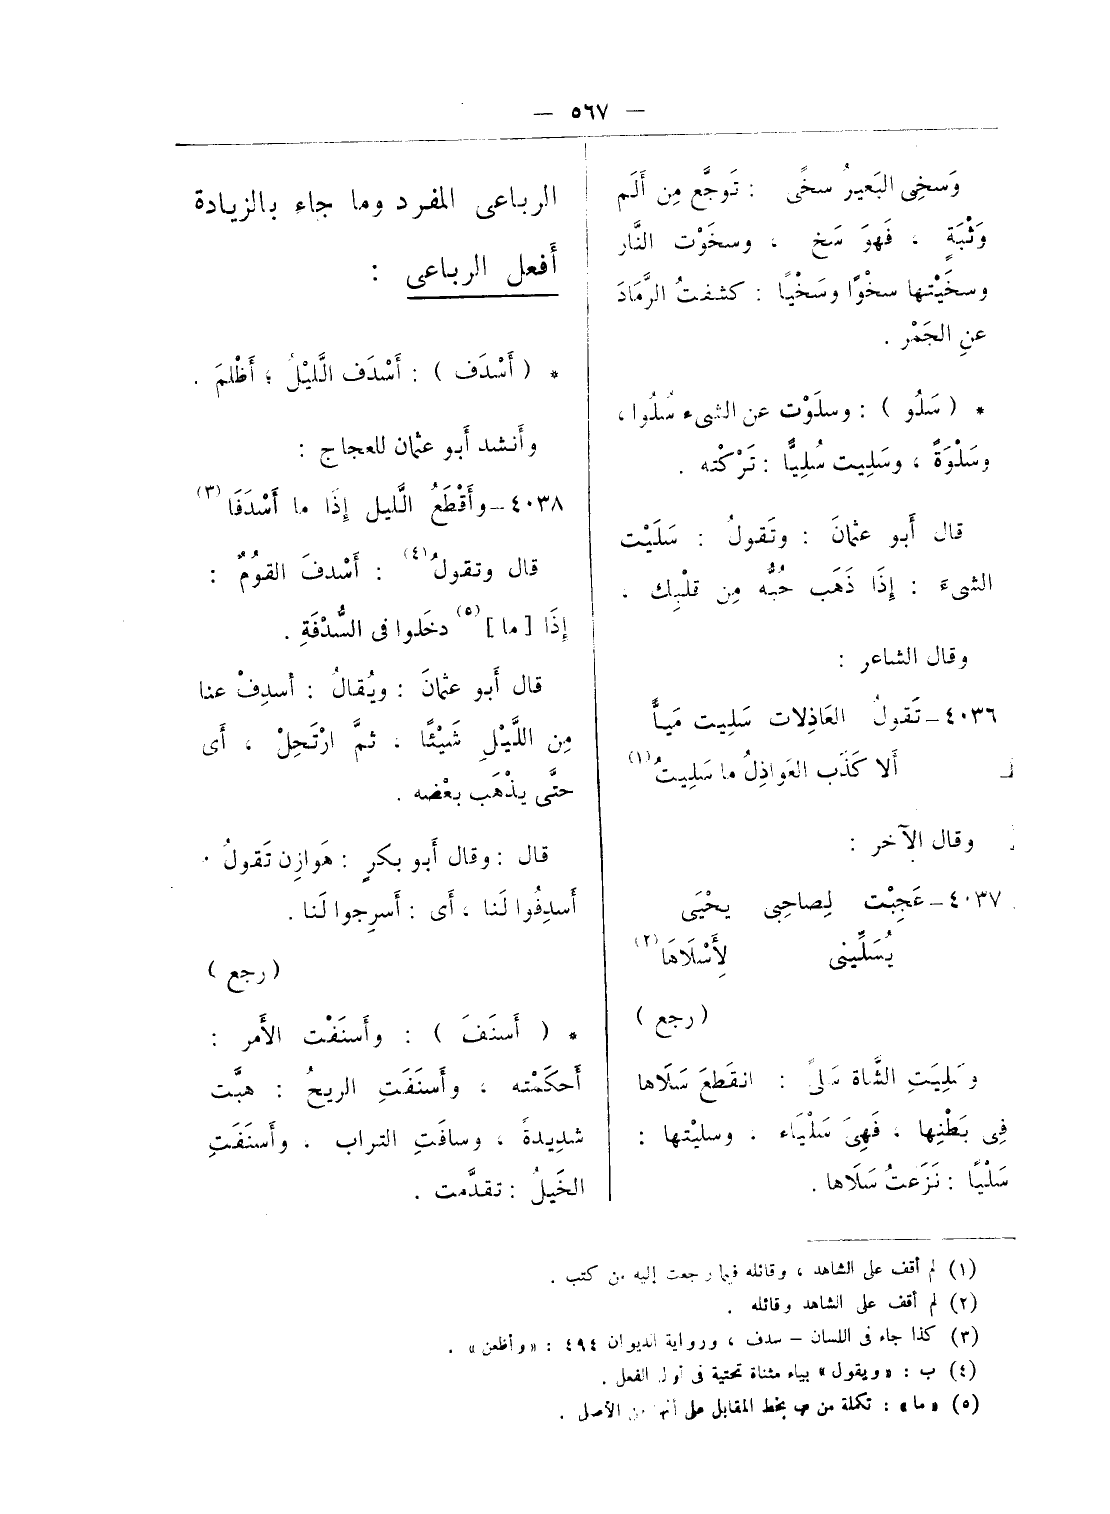 — ٥٦٧ —
وَسخِى البَعيرُ سخًى : تَوجَّع مِن أَلَم
وَثْبَةٍ ، فَهوَ سَخ ، وسخَوْت النَّار
وسخَيْتها سخْوًا وسَخْيًا : كشفتُ الرَّمَادَ
عنِ الجَمْر .
* ( سَلُو ) : وسلَوْت عن الشىء سُلُوا ،
وسَلْوَةً ، وسَلِيت سُلِيًّا : تَرْكْته .
قال أَبو عثمانَ : وتَقولُ : سَلَيْت
الشىءَ : إِذَا ذَهَب حُبُّه مِن قلْبِك .
وقال الشاعر :
٤٠٣٦ – تَقولُ العَاذِلات سَلِيت مَيأَّ
ألا كَذَب العَواذِلُ ما سَلِيتُ (١)
وقال الآخر :
٤٠٣٧ – عَجِبْت لِصاحِبِى يحْيَى
يُسَلِّينى لِأَسْلَاهَا (٢)
( رجع )
وسَلِيَتِ الشَّاة سَلىً : انقَطعَ سَلَاها
فِى بَطْنِها ، فَهِىَ سَلْيَاء . وسليْتها :
سَلْيًا : نَزَعتُ سَلَاها .
الرباعى المفرد وما جاء بالزيادة
أَفعل الرباعى :
* ( أَسْدَف ) : أَسْدَف الَّليْلُ ؛ أَظْلمَ .
وأَنشد أَبو عثمان للعجاج :
٤٠٣٨ – وأَقْطَعُ الَّليل إِذَا ما أَسْدَفَا (٣)
قال وتقولُ (٤) : أَسْدفَ القومُ :
إِذَا [ ما ] (٥) دخَلوا فى السُّدْفَةِ .
قال أَبو عثمانَ : ويُقالُ : أسدِفْ عنا
مِن اللَّيْلِ شَيْئًا ، ثمَّ ارْتَحِلْ ، أَى
حتَّى يذْهَب بعْضه .
قال : وقال أَبو بكرٍ : هَوازِن تَقولُ .
أَسدِفُوا لَنا ، أَى : أَسرِجوا لَنا .
( رجع )
* ( أَسنَفَ ) : وأَسنَفْت الأَمر :
أَحكَمْته ، وأَسنَفَتِ الريحُ : هبَّت
شدِيدةً ، وسافَتِ التراب . وأَسنَفَتِ
الخَيلُ : تقدَّمت .
(١) لم أقف على الشاهد ، وقائله فيما رجعت إليه من كتب .
(٢) لم أقف على الشاهد وقائله .
(٣) كذا جاء فى اللسان – سدف ، ورواية الديوان ٤٩٤ : «وأظعن» .
(٤) ب : «ويقول» بياء مثناة تحتية فى أول الفعل .
(٥) «ما» : تكملة من ب بخط المقابل على أنها من الأصل .